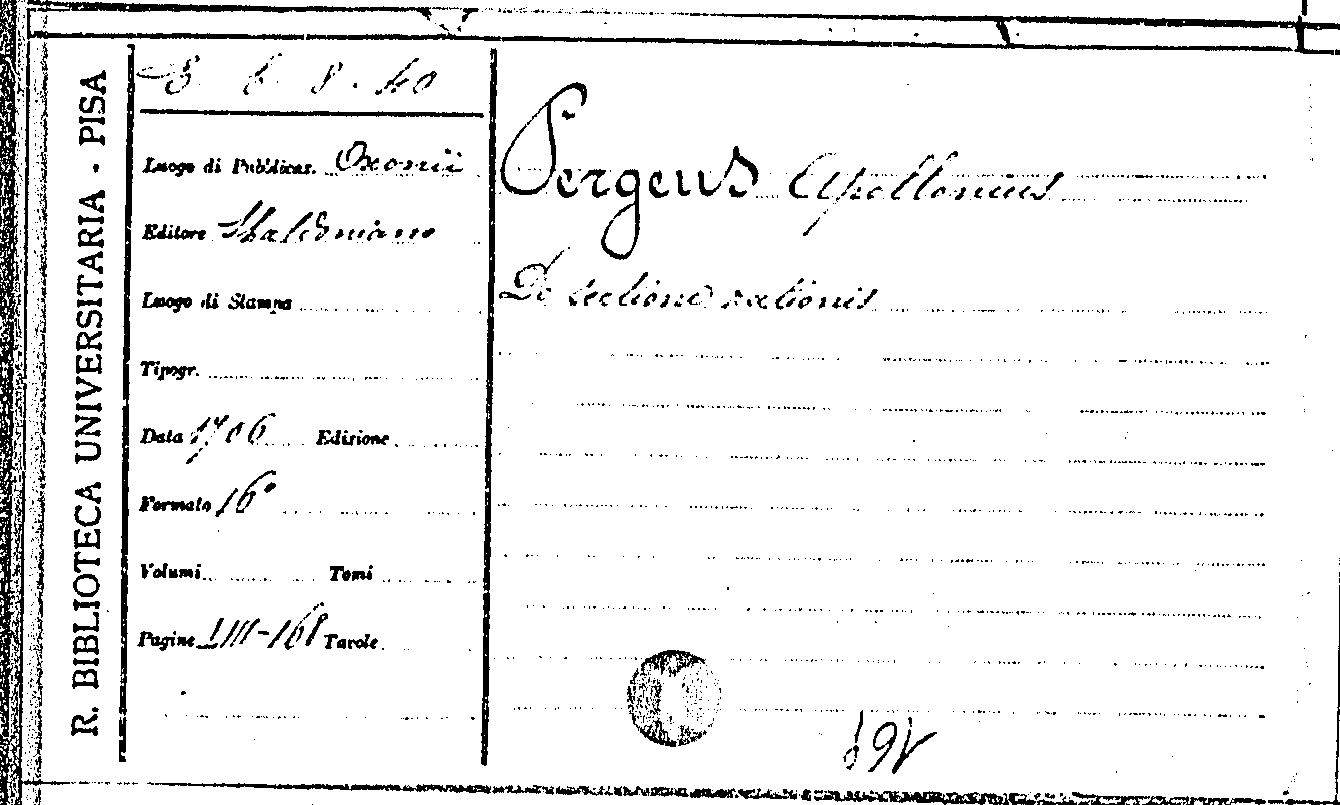 R. BIBLIOTECA UNIVERSITARIA - PISA
E 6. 8. 40
Luogo di Pubblicaz. Oxonii
Editore Sheldoniano
Luogo di Stampa
Tipogr.
Data 1706 Edizione
Formato 16°
Volumi Tomi
Pagine LIII-168 Tavole
Pergeus Apollonius
De sectione rationis